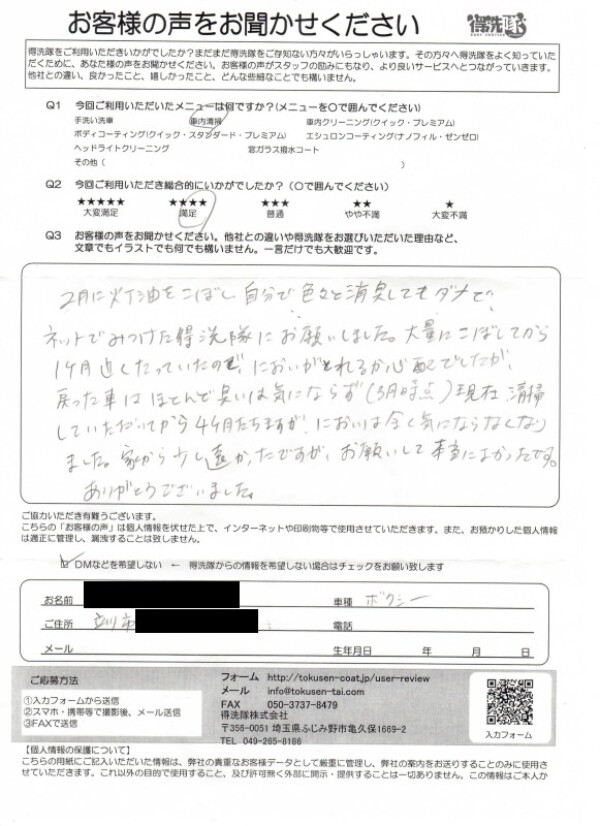 お客様の声をお聞かせください 得洗隊
得洗隊をご利用いただきいかがでしたか？まだまだ得洗隊をご存知ない方々がいらっしゃいます。その方々へ得洗隊をよく知っていた
だくために、あなた様の声をお聞かせください。お客様の声がスタッフの励みにもなり、より良いサービスへとつながっていきます。
他社との違い、良かったこと、嬉しかったこと、どんな些細なことでも構いません。
Q1 今回ご利用いただいたメニューは何ですか？(メニューを〇で囲んでください)
手洗い洗車 車内清掃 車内クリーニング(クイック・プレミアム)
ボディコーティング(クイック・スタンダード・プレミアム) エシュロンコーティング(ナノフィル・ゼンゼロ)
ヘッドライトクリーニング 窓ガラス撥水コート
その他（ ）
Q2 今回ご利用いただき総合的にいかがでしたか？（〇で囲んでください）
★★★★★ ★★★★ ★★★ ★★ ★
大変満足 満足 普通 やや不満 大変不満
Q3 お客様の声をお聞かせください。他社との違いや得洗隊をお選びいただいた理由など、
文章でもイラストでも何でも構いません。一言だけでも大歓迎です。
2月に灯油をこぼし、自分で色々と消臭してもダメで
ネットでみつけた得洗隊にお願いしました。大量にこぼしてから
1ヶ月近くたっていたので、においがとれるか心配でしたが、
戻った車はほとんど臭いは気にならず(3月時点)現在、清掃
していただいてから4ヶ月たちますが、においは全く気にならなくなり
ました。家から少し遠かったですが、お願いして本当によかったです。
ありがとうございました。
ご協力いただき有難うございます。
こちらの「お客様の声」は個人情報を伏せた上で、インターネットや印刷物等で使用させていただきます。また、お預かりした個人情報
は適正に管理し、漏洩することは致しません。
☑ DMなどを希望しない ← 得洗隊からの情報を希望しない場合はチェックをお願い致します
お名前 車種 ボクシー
ご住所 立川市 電話
メール 生年月日 年 月 日
ご応募方法
①入力フォームから送信
②スマホ・携帯等で撮影後、メール送信
③FAXで送信
フォーム http://tokusen-coat.jp/user-review
メール info@tokusen-tai.com
FAX 050-3737-8479
得洗隊株式会社
〒356-0051 埼玉県ふじみ野市亀久保1669-2
TEL 049-265-8188
入力フォーム
【個人情報の保護について】
こちらの用紙にご記入いただいた情報は、弊社の貴重なお客様データとして厳重に管理し、弊社の案内をお送りすることのみに使用さ
せていただきます。これ以外の目的で使用すること、及び許可無く外部に開示・提供することは一切ありません。この情報はご本人か